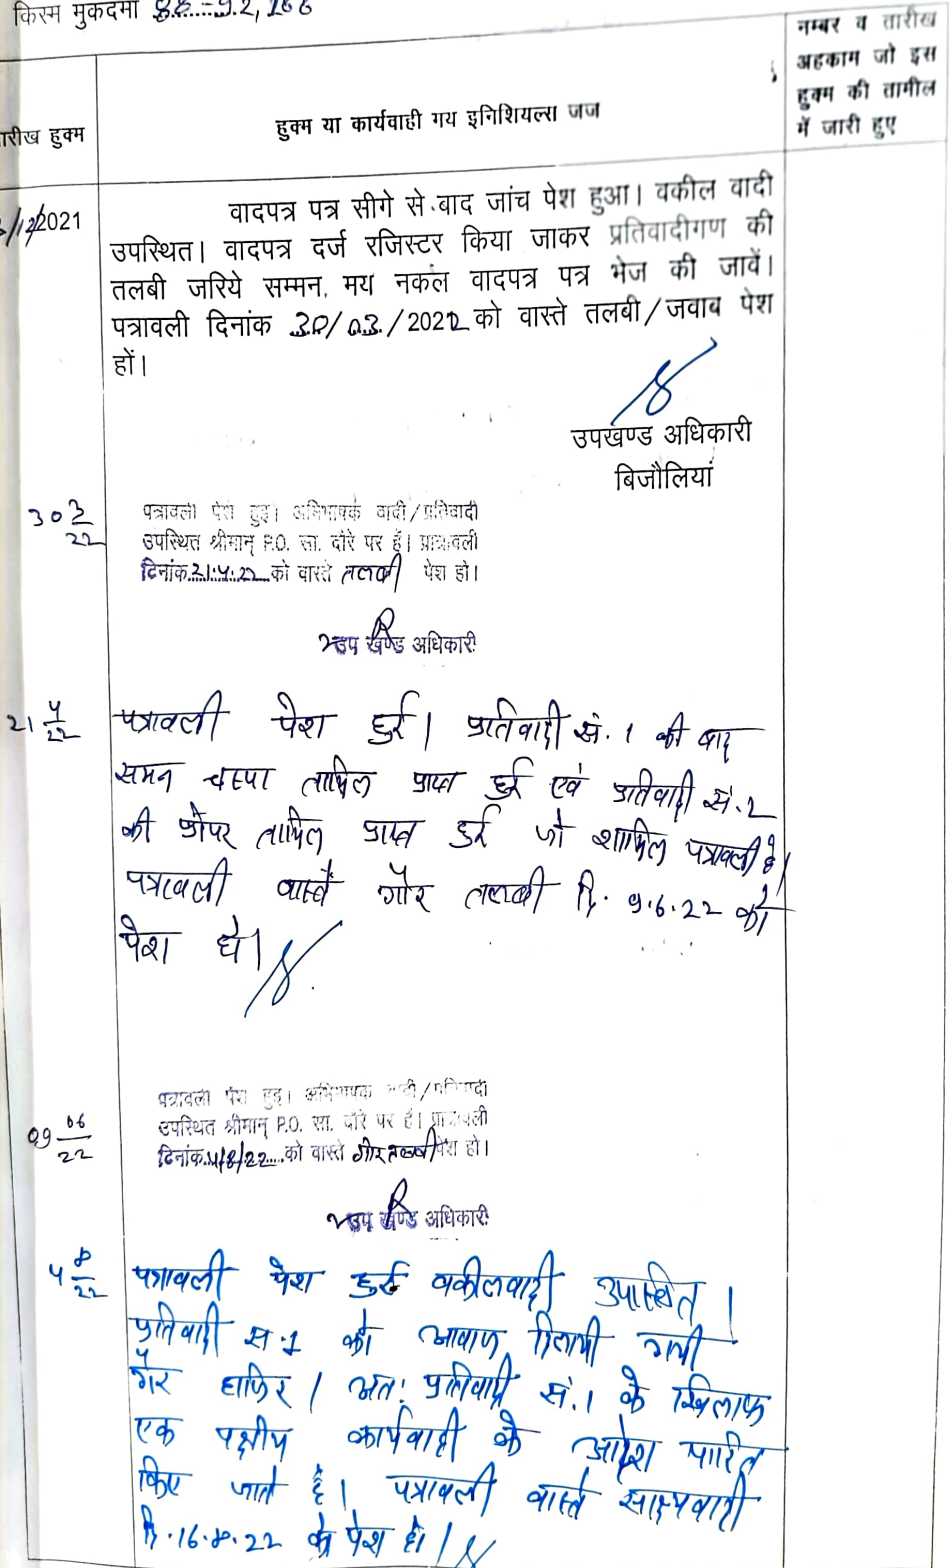 किस्म मुकदमा
नम्बर व तारीख
अहकाम जो इस
हुक्म की तामील
में जारी हुए
तारीख हुक्म
हुक्म या कार्यवाही गय इनिशियल्स जज
/12/2021
वादपत्र पत्र सीगे से बाद जांच पेश हुआ। वकील वादी
उपस्थित। वादपत्र दर्ज रजिस्टर किया जाकर प्रतिवादीगण की
तलबी जरिये सम्मन, मय नकल वादपत्र पत्र भेज की जावें।
पत्रावली दिनांक 30/03/2022 को वास्ते तलबी/जवाब पेश
हों।
उपखण्ड अधिकारी
बिजौलियां
30 3/22
पत्रावली पेश हुइ। अभिभाषक वादी/प्रतिवादी
उपस्थित श्रीमान् P.O. सा. दौरे पर हैं। प्रात्रावली
दिनांक 21.4.22 को वास्ते तलबी पेश हो।
उप खण्ड अधिकारी
21 4/22
पत्रावली पेश हुई। प्रतिवादी सं. 1 की बाद
समन चस्पा तामिल प्राप्त हुई एवं प्रतिवादी सं. 2
की तामिल प्राप्त हुई जो शामिल पत्रावली है।
पत्रावली वास्ते गौर तलबी दि. 9.6.22 को
पेश हो।
09 06/22
पत्रावली पेश हुइ। अभिभाषक वादी/प्रतिवादी
उपस्थित श्रीमान् P.O. सा. दौरे पर हैं। प्रात्रावली
दिनांक 4/8/22 को वास्ते गौर तलबी पेश हो।
उप खण्ड अधिकारी
4 8/22
पत्रावली पेश हुई वकीलवादी उपस्थित।
प्रतिवादी सं. 1 को आवाज दिलायी गयी
गैर हाजिर। अतः प्रतिवादी सं. 1 के खिलाफ
एक पक्षीय कार्यवाही के आदेश पारित
किए जाते है। पत्रावली वास्ते साक्ष्यवादी
दि. 16.8.22 को पेश हो।